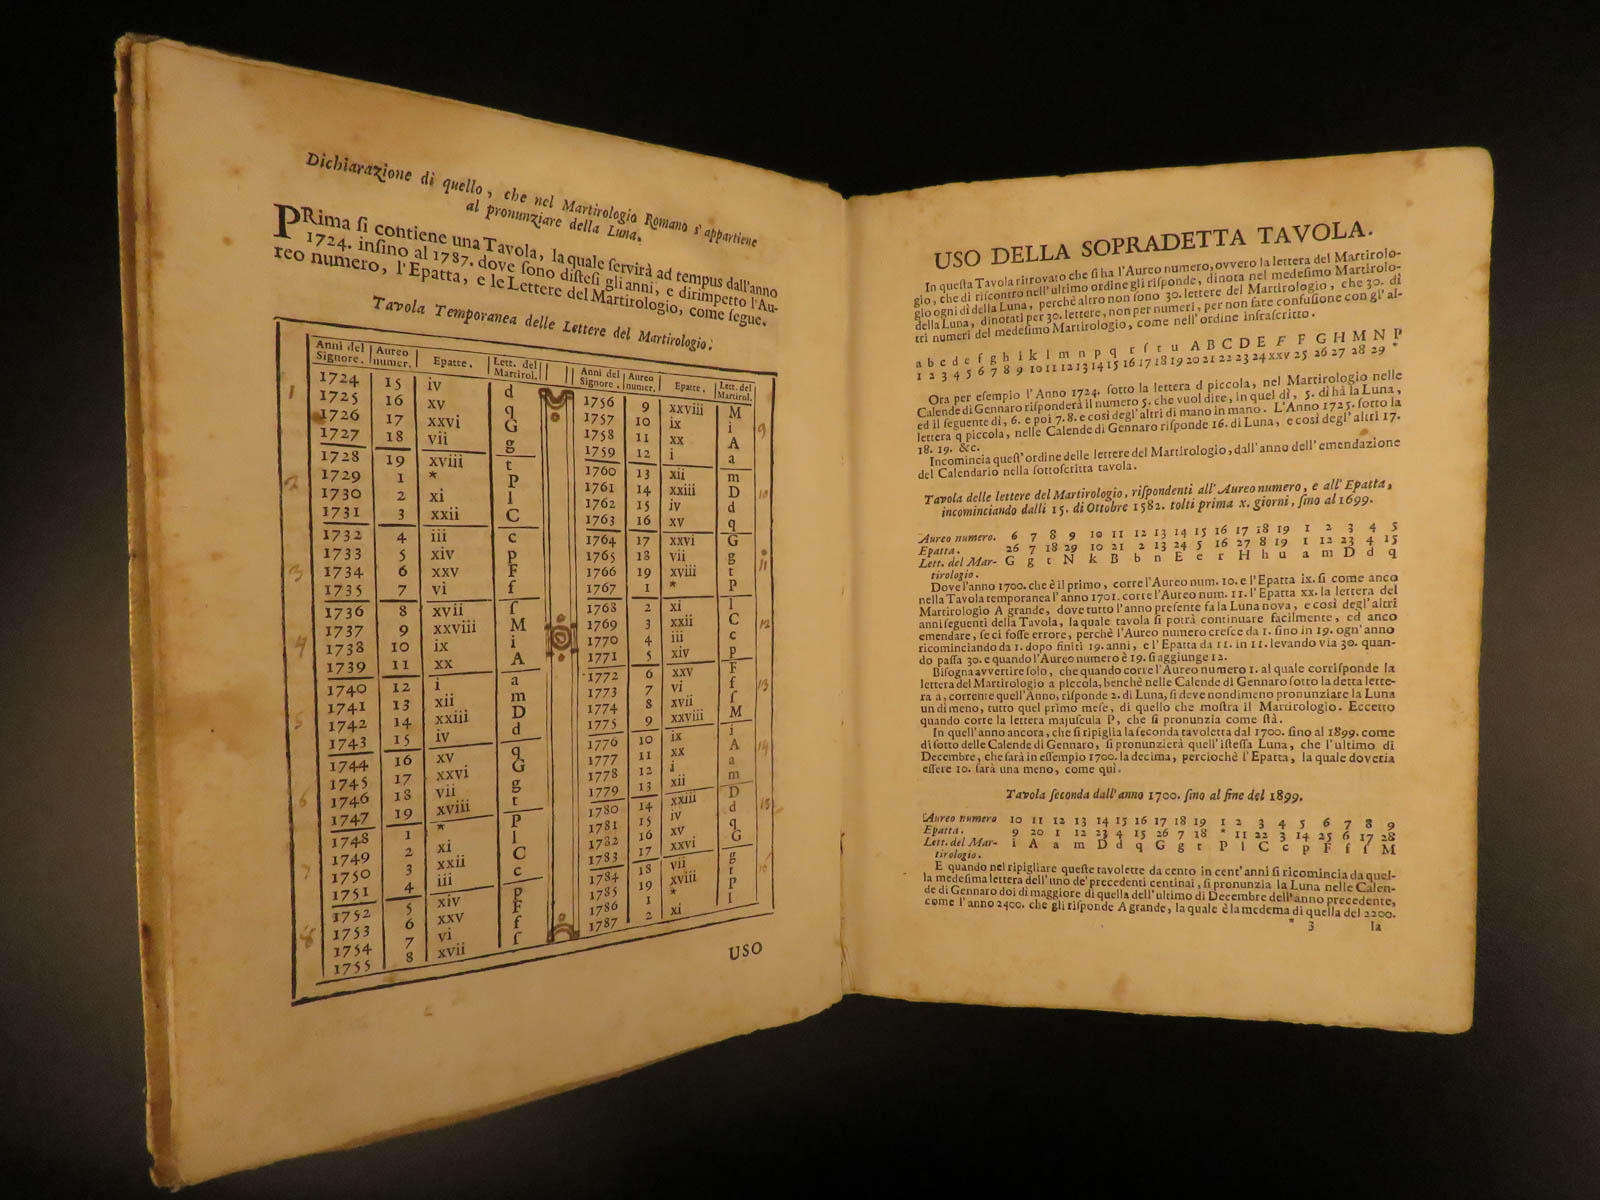 Dichiarazione di quello, che nel Martirologio Romano s'appartiene
al pronunziare della Luna.
PRima ſi contiene una Tavola, la quale ſervirà ad tempus dall'anno
1724. inſino al 1787. dove ſono diſteſi gli anni, e dirimpetto l'Au-
reo numero, l'Epatta, e le Lettere del Martirologio, come ſegue.
Tavola Temporanea delle Lettere del Martirologio.
Anni del Signore. Aureo numer. Epatte. Lett. del Martirol.
1 1724 15 iv d
1725 16 xv q
1726 17 xxvi G
1727 18 vii g
1728 19 xviii t
2 1729 1 * P
1730 2 xi l
1731 3 xxii C
1732 4 iii c
1733 5 xiv p
3 1734 6 xxv F
1735 7 vi f
1736 8 xvii ſ
1737 9 xxviii M
4 1738 10 ix i
1739 11 xx A
1740 12 i a
1741 13 xii m
5 1742 14 xxiii D
1743 15 iv d
1744 16 xv q
1745 17 xxvi G
6 1746 18 vii g
1747 19 xviii t
1748 1 * P
1749 2 xi l
7 1750 3 xxii C
1751 4 iii c
1752 5 xiv p
1753 6 xxv F
8 1754 7 vi f
1755 8 xvii ſ
Anni del Signore. Aureo numer. Epatte. Lett. del Martirol.
1756 9 xxviii M
1757 10 ix i 9
1758 11 xx A
1759 12 i a
1760 13 xii m
1761 14 xxiii D 10
1762 15 iv d
1763 16 xv q
1764 17 xxvi G
1765 18 vii g
1766 19 xviii t 11
1767 1 * P
1768 2 xi l
1769 3 xxii C 12
1770 4 iii c
1771 5 xiv p
1772 6 xxv F
1773 7 vi f 13
1774 8 xvii ſ
1775 9 xxviii M
1776 10 ix i
1777 11 xx A 14
1778 12 i a
1779 13 xii m
1780 14 xxiii D
1781 15 iv d 15
1782 16 xv q
1783 17 xxvi G
1784 18 vii g
1785 19 xviii t 16
1786 1 * P
1787 2 xi l
USO
USO DELLA SOPRADETTA TAVOLA.
In queſta Tavola ritrovato che ſi ha l'Aureo numero, ovvero la lettera del Martirolo-
gio, che di riſcontro nell'ultimo ordine gli riſponde, dinota nel medeſimo Martirolo-
gio ogni dì della Luna, perchè altro non ſono 30. lettere del Martirologio, che 30. dì
della Luna, dinotati per 30. lettere, non per numeri, per non fare confuſione con gl'al-
tri numeri del medeſimo Martirologio, come nell'ordine infraſcritto.
a b c d e f g h i k l m n p q r ſ t u A B C D E F F G H M N P
1 2 3 4 5 6 7 8 9 10 11 12 13 14 15 16 17 18 19 20 21 22 23 24 xxv 25 26 27 28 29 *
Ora per eſempio l'Anno 1724. ſotto la lettera d piccola, nel Martirologio nelle
Calende di Gennaro riſponderà il numero 5. che vuol dire, in quel dì, 5. dì hà la Luna,
ed il ſeguente dì, 6. e poi 7. 8. e così degl'altri di mano in mano. L'Anno 1725. ſotto la
lettera q piccola, nelle Calende di Gennaro riſponde 16. di Luna, e così degl'altri 17.
18. 19. &c.
Incomincia queſt'ordine delle lettere del Martirologio, dall'anno dell'emendazione
del Calendario nella ſottoſcritta tavola.
Tavola delle lettere del Martirologio, riſpondenti all'Aureo numero, e all'Epatta,
incominciando dalli 15. di Ottobre 1582. tolti prima x. giorni, ſino al 1699.
Aureo numero. 6 7 8 9 10 11 12 13 14 15 16 17 18 19 1 2 3 4 5
Epatta. 26 7 18 29 10 21 2 13 24 5 16 27 8 19 1 12 23 4 15
Lett. del Mar- G g t N k B b n E e r H h u a m D d q
tirologio.
Dove l'anno 1700. che è il primo, corre l'Aureo num. 10. e l'Epatta ix. ſi come anco
nella Tavola temporanea l'anno 1701. corre l'Aureo num. 11. l'Epatta xx. la lettera del
Martirologio A grande, dove tutto l'anno preſente fa la Luna nova, e così degl'altri
anni ſeguenti della Tavola, la quale tavola ſi potrà continuare facilmente, ed anco
emendare, ſe ci foſſe errore, perchè l'Aureo numero creſce da 1. ſino in 19. ogn'anno
ricominciando da 1. dopo finiti 19. anni, e l'Epatta da 11. in 11. levando via 30. quan-
do paſſa 30. e quando l'Aureo numero è 19. ſi aggiunge 12.
Biſogna avvertire ſolo, che quando corre l'Aureo numero 1. al quale corriſponde la
lettera del Martirologio a piccola, benchè nelle Calende di Gennaro ſotto la detta lette-
ra a, corrente quell'Anno, riſponde 2. di Luna, ſi deve nondimeno pronunziare la Luna
un dì meno, tutto quel primo meſe, di quello che moſtra il Martirologio. Eccetto
quando corre la lettera majuſcula P, che ſi pronunzia come ſtà.
In quell'anno ancora, che ſi ripiglia la ſeconda tavoletta dal 1700. ſino al 1899. come
di ſotto delle Calende di Gennaro, ſi pronunzierà quell'iſteſſa Luna, che l'ultimo di
Decembre, che ſarà in eſſempio 1700. la decima, perciochè l'Epatta, la quale doveria
eſſere 10. ſarà una meno, come quì.
Tavola ſeconda dall'anno 1700. ſino al fine del 1899.
Aureo numero 10 11 12 13 14 15 16 17 18 19 1 2 3 4 5 6 7 8 9
Epatta. 9 20 1 12 23 4 15 26 7 18 * 11 22 3 14 25 6 17 28
Lett. del Mar- i A a m D d q G g t P l C c p F f ſ M
tirologio.
E quando nel ripigliare queſte tavolette da cento in cent'anni ſi ricomincia da quel-
la medeſima lettera dell'uno de' precedenti centinai, ſi pronunzia la Luna nelle Calen-
de di Gennaro doi di maggiore di quella dell'ultimo di Decembre dell'anno precedente,
come l'anno 2400. che gli riſponde A grande, la quale è la medema di quella del 2200.
* 3 la